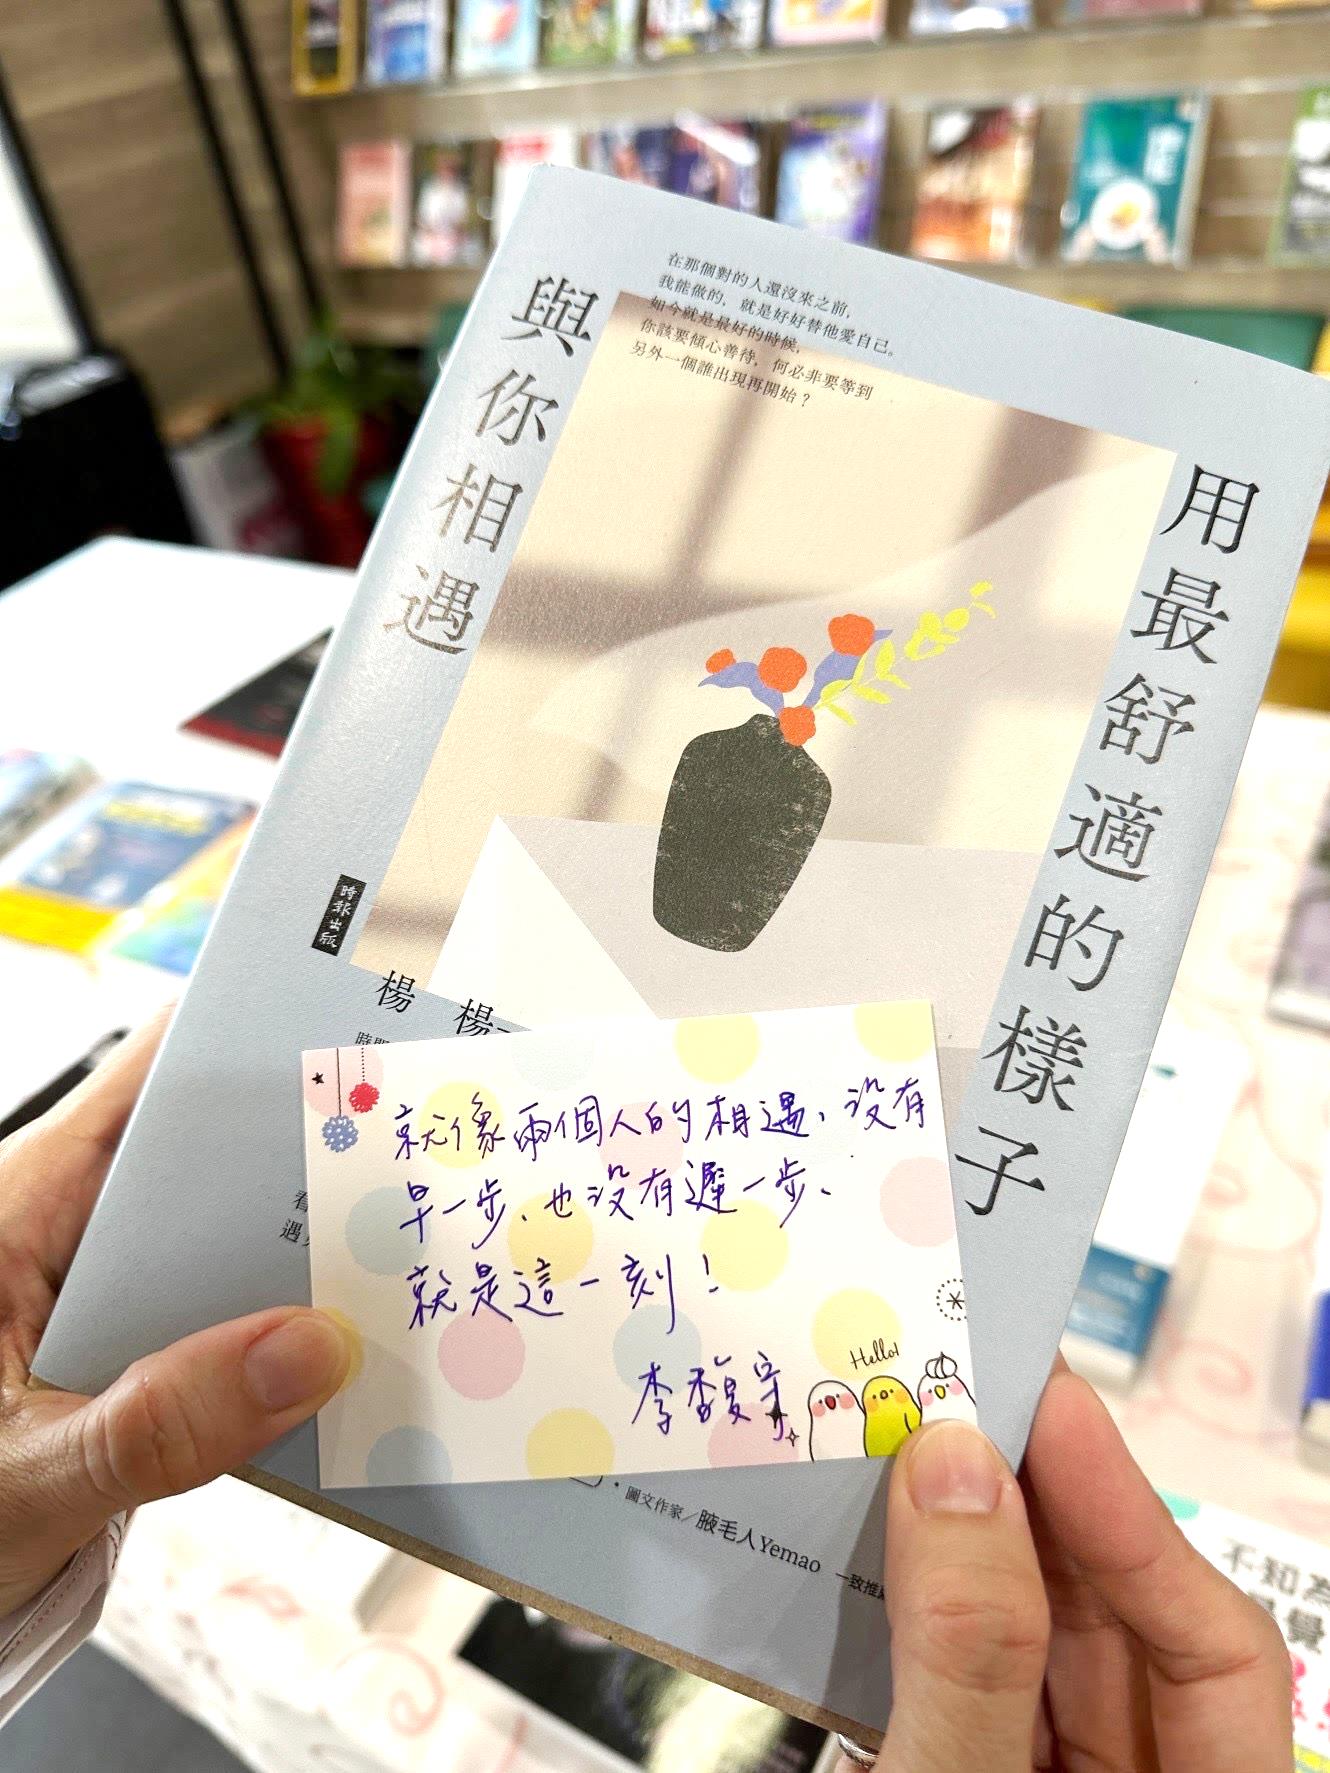 在那個對的人還沒來之前,
我能做的,就是好好替他愛自己。
如今就是最好的時候,
你該要傾心善待,何必非要等到
另外一個誰出現再開始?
用最舒適的樣子
與你相遇
時報出版
楊 楊
就像兩個人的相遇、沒有
早一步、也沒有遲一步、
就是這一刻!
李馥
Hello!
・圖文作家/腋毛人Yemao 一致推
不知為
覺